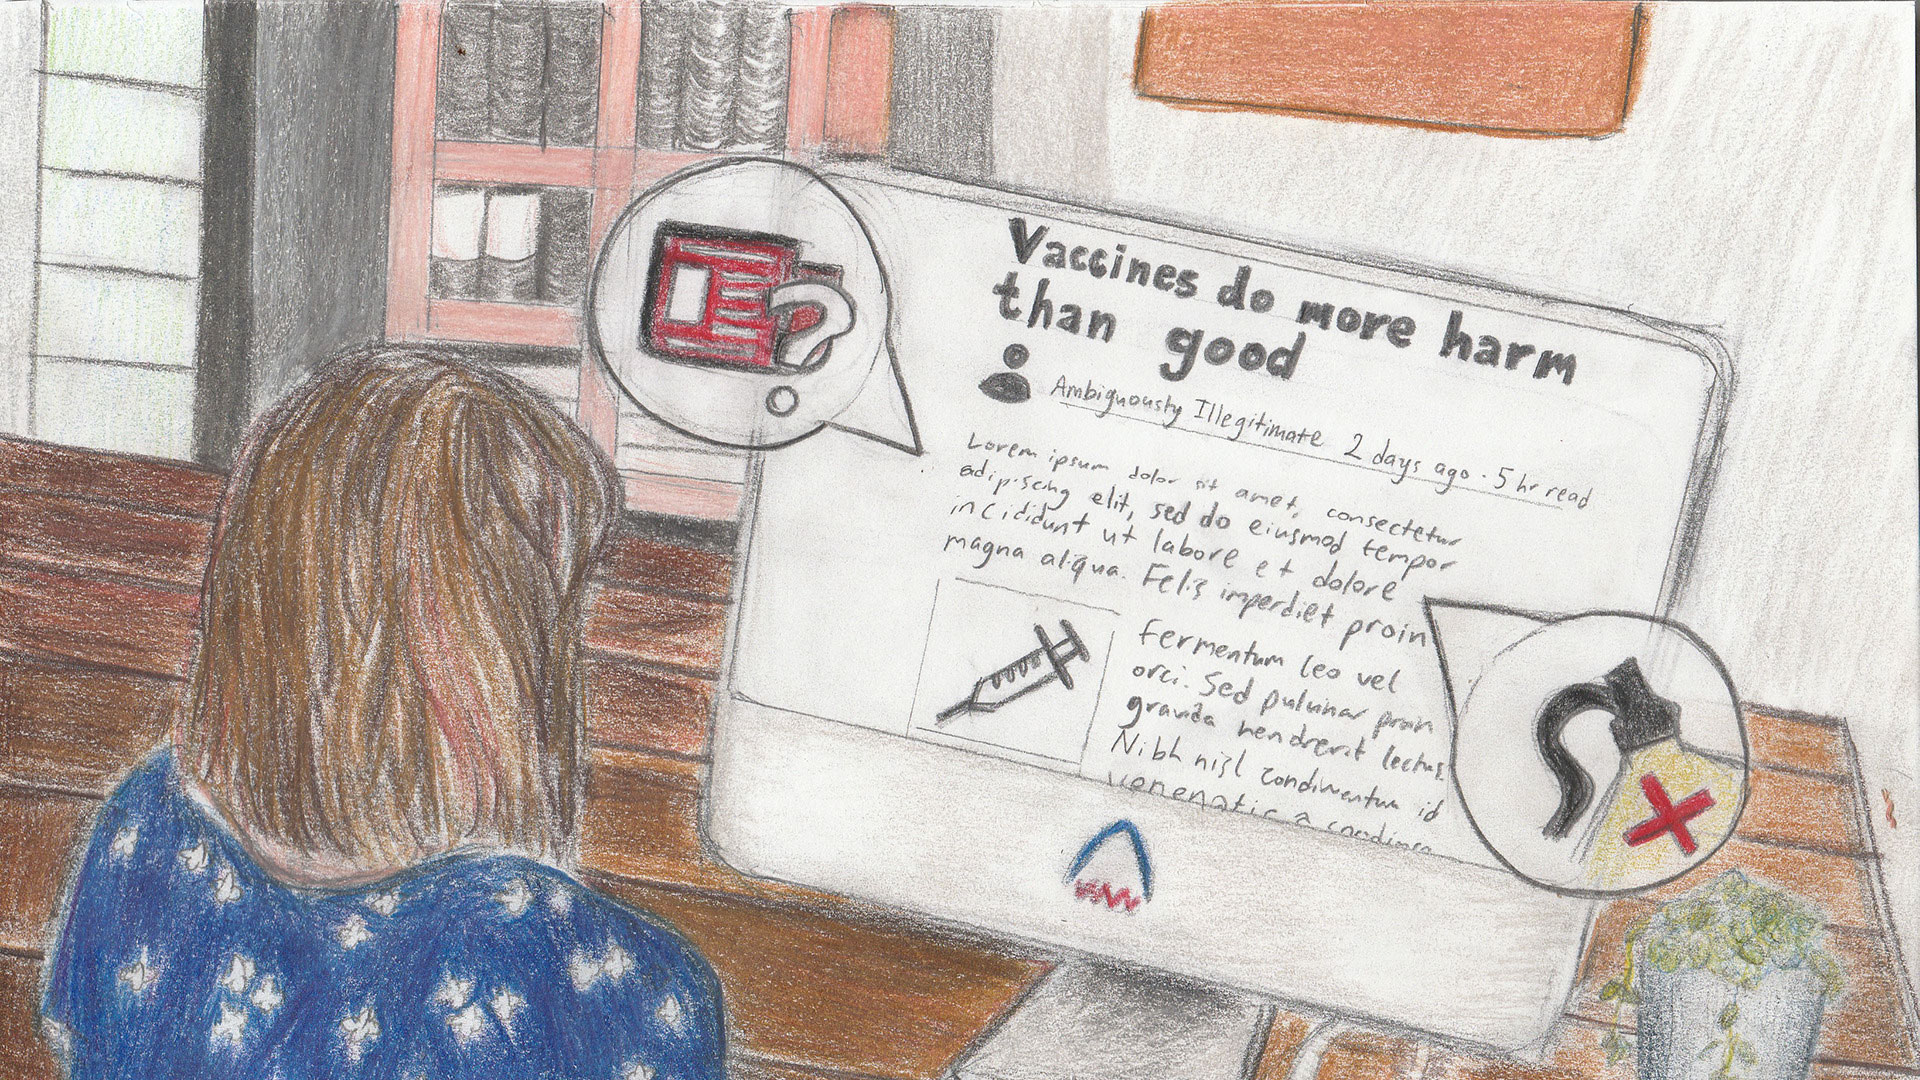 Vaccines do more harm
than good
Ambiguously Illegitimate 2 days ago · 5 hr read
Lorem ipsum dolor sit amet, consectetur
adipiscing elit, sed do eiusmod tempor
incididunt ut labore et dolore
magna aliqua. Felis imperdiet proin
fermentum leo vel
orci. Sed pulvinar proin
gravida hendrerit lectus.
Nibh nisl condimentum id
venenatis a condimen